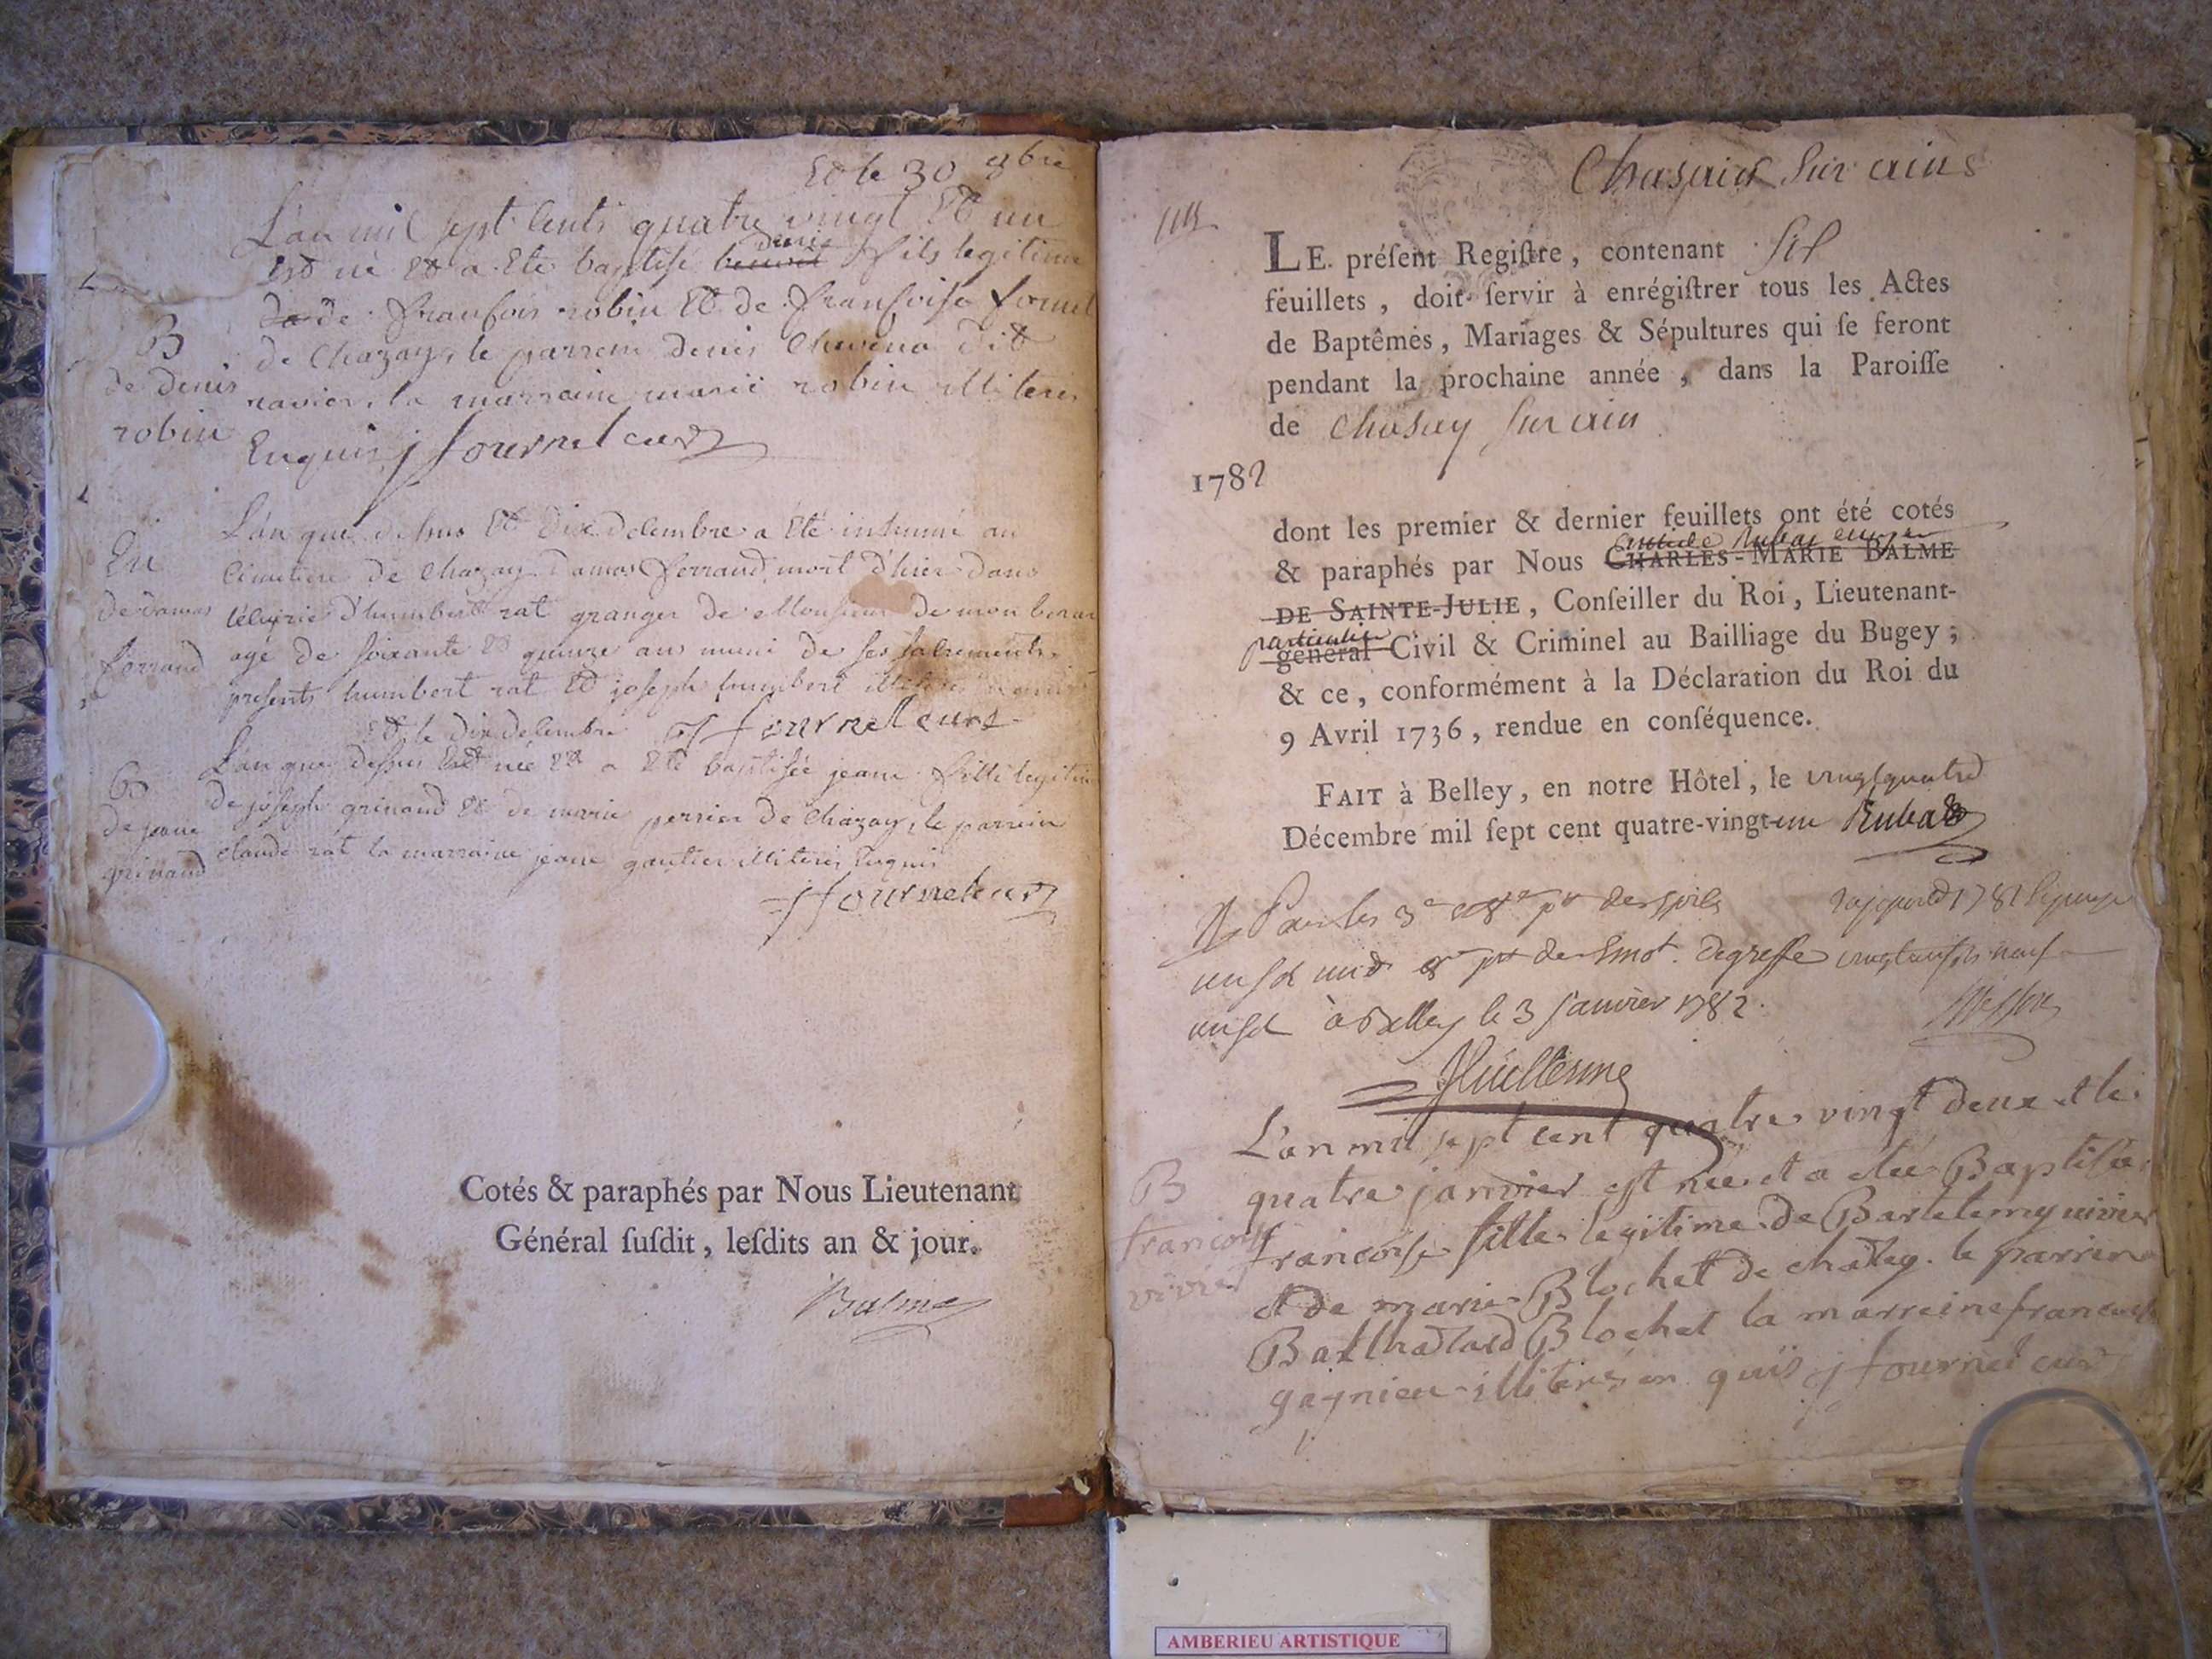 Et le 30 9bre
L'an mil sept cents quatre vingt Et un
Est né Et a Eté baptisé benoit denis fils legitime
de de francois robin Et de francoise fornet
de Chazay, le parrein denis Chavena dit
B
de denis
robin
ravier, la marraine marie robin illiterés
Enquis j fournel curé
L'an que dessus Et dix decembre a Eté inhumé au
Cimetiere de Chazay damas ferrand mort d'hier dans
En
de damas
ferrand
d'humbert rat granger de Monsieur de
agé de soixante Et quinze ans muni de ses sacrements
presents humbert rat Et joseph humbert
Et le dix decembre j fournel curé
L'an que dessus Est née Et a Eté baptisée jeane fille legitime
B
de jeane
grinand
de joseph grinand Et de marie perrier de Chazay, le parrein
claude rat la marraine jeane gautier illiterés Enquis
j fournel curé
Cotés & paraphés par Nous Lieutenant
Général susdit, lesdits an & jour.
Balme
Chasaix Sur ains
LE présent Registre, contenant Six
feuillets, doit servir à enrégistrer tous les Actes
de Baptêmes, Mariages & Sépultures qui se feront
pendant la prochaine année, dans la Paroisse
de Chasay sur ain
1782
dont les premier & dernier feuillets ont été cotés
& paraphés par Nous CHARLES-MARIE BALME
DE SAINTE-JULIE, Conseiller du Roi, Lieutenant-
particulier
général Civil & Criminel au Bailliage du Bugey;
& ce, conformément à la Déclaration du Roi du
9 Avril 1736, rendue en conséquence.
FAIT à Belley, en notre Hôtel, le vingt quatre
Décembre mil sept cent quatre-vingt-un Rubat
à Belley le 3 janvier 1782
L'an mil sept cent quatre vingt deux et le
B
francoise
vivier
quatre janvier est née et a eté Baptisée
francoise fille legitime de Bartelemy vivier
et de marie Blochet de chatey. le parrein
Balthazard Blochet la marreine francoise
gagnieu illiterés en quis j fournel curé
AMBERIEU ARTISTIQUE